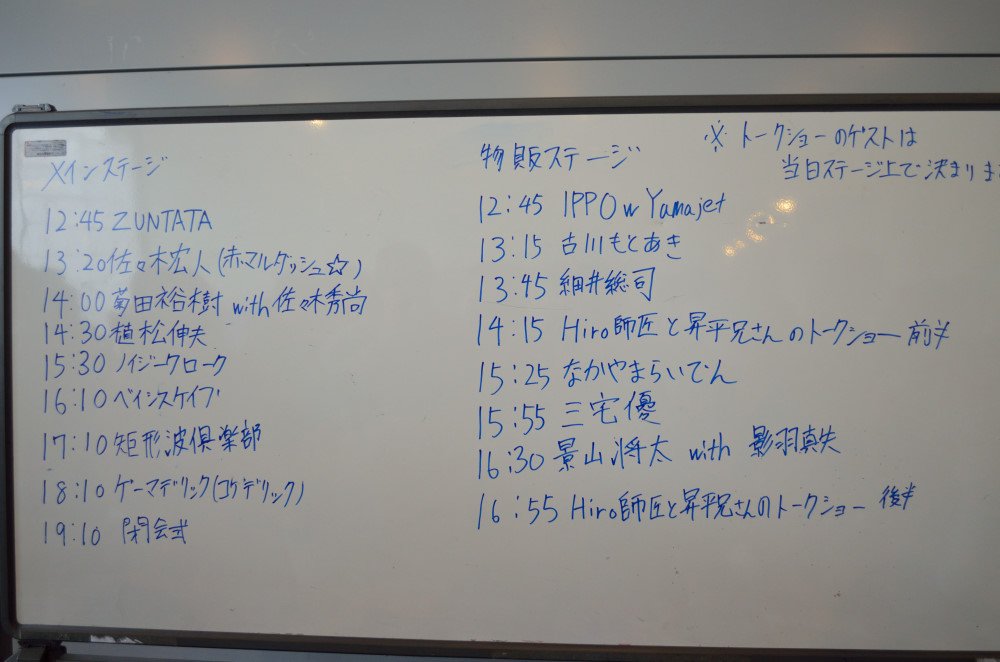 メインステージ
12:45 ZUNTATA
13:20 佐々木宏人(赤マルダッシュ☆)
14:00 菊田裕樹 with 佐々木秀尚
14:30 植松伸夫
15:30 ノイジークローク
16:10 ベイシスケイプ
17:10 矩形波倶楽部
18:10 ゲーマデリック(コケデリック)
19:10 閉会式
物販ステージ
12:45 IPPO w Yamajet
13:15 古川もとあき
13:45 細井総司
14:15 Hiro師匠と昇平兄さんのトークショー 前半
15:25 なかやまらいでん
15:55 三宅優
16:30 景山将太 with 影羽真矢
16:55 Hiro師匠と昇平兄さんのトークショー 後半
※ トークショーのゲストは
当日ステージ上で決まりま